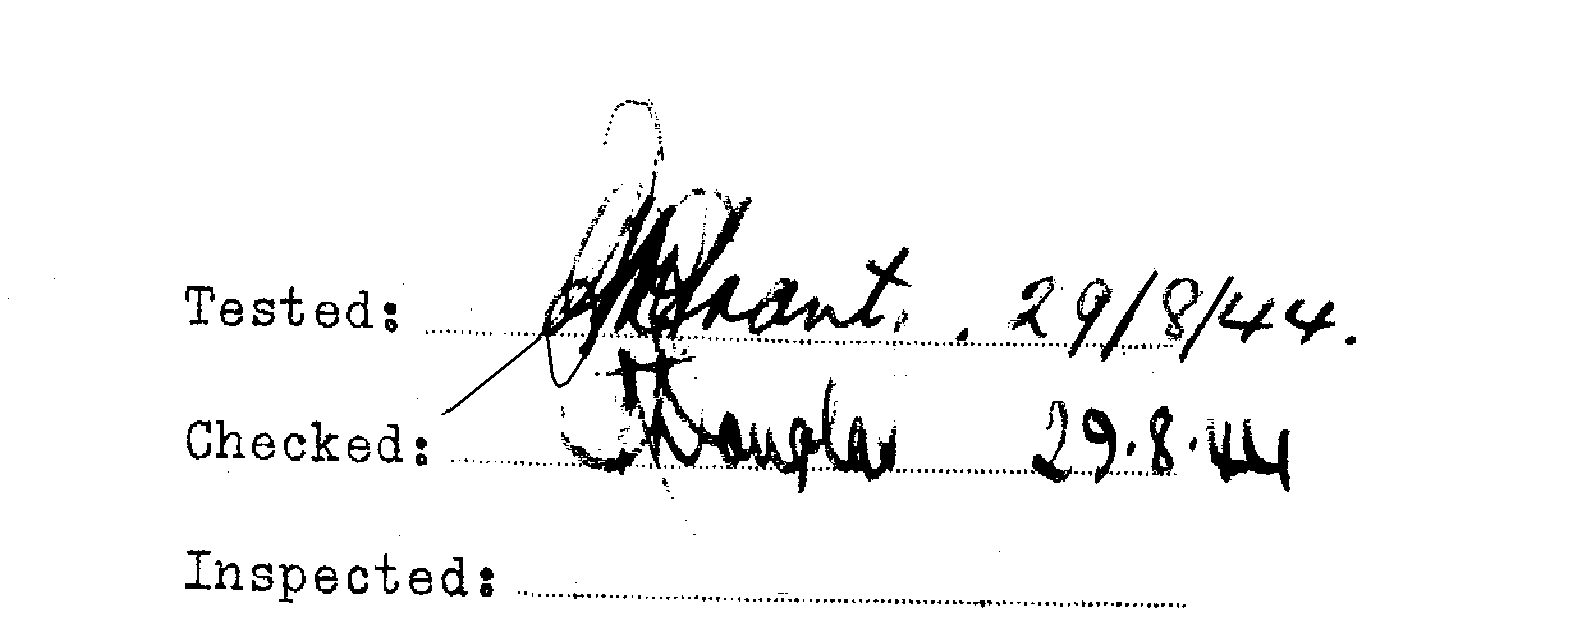 Tested: Grant. . 29/8/44.
Checked: Douglas 29.8.44
Inspected: